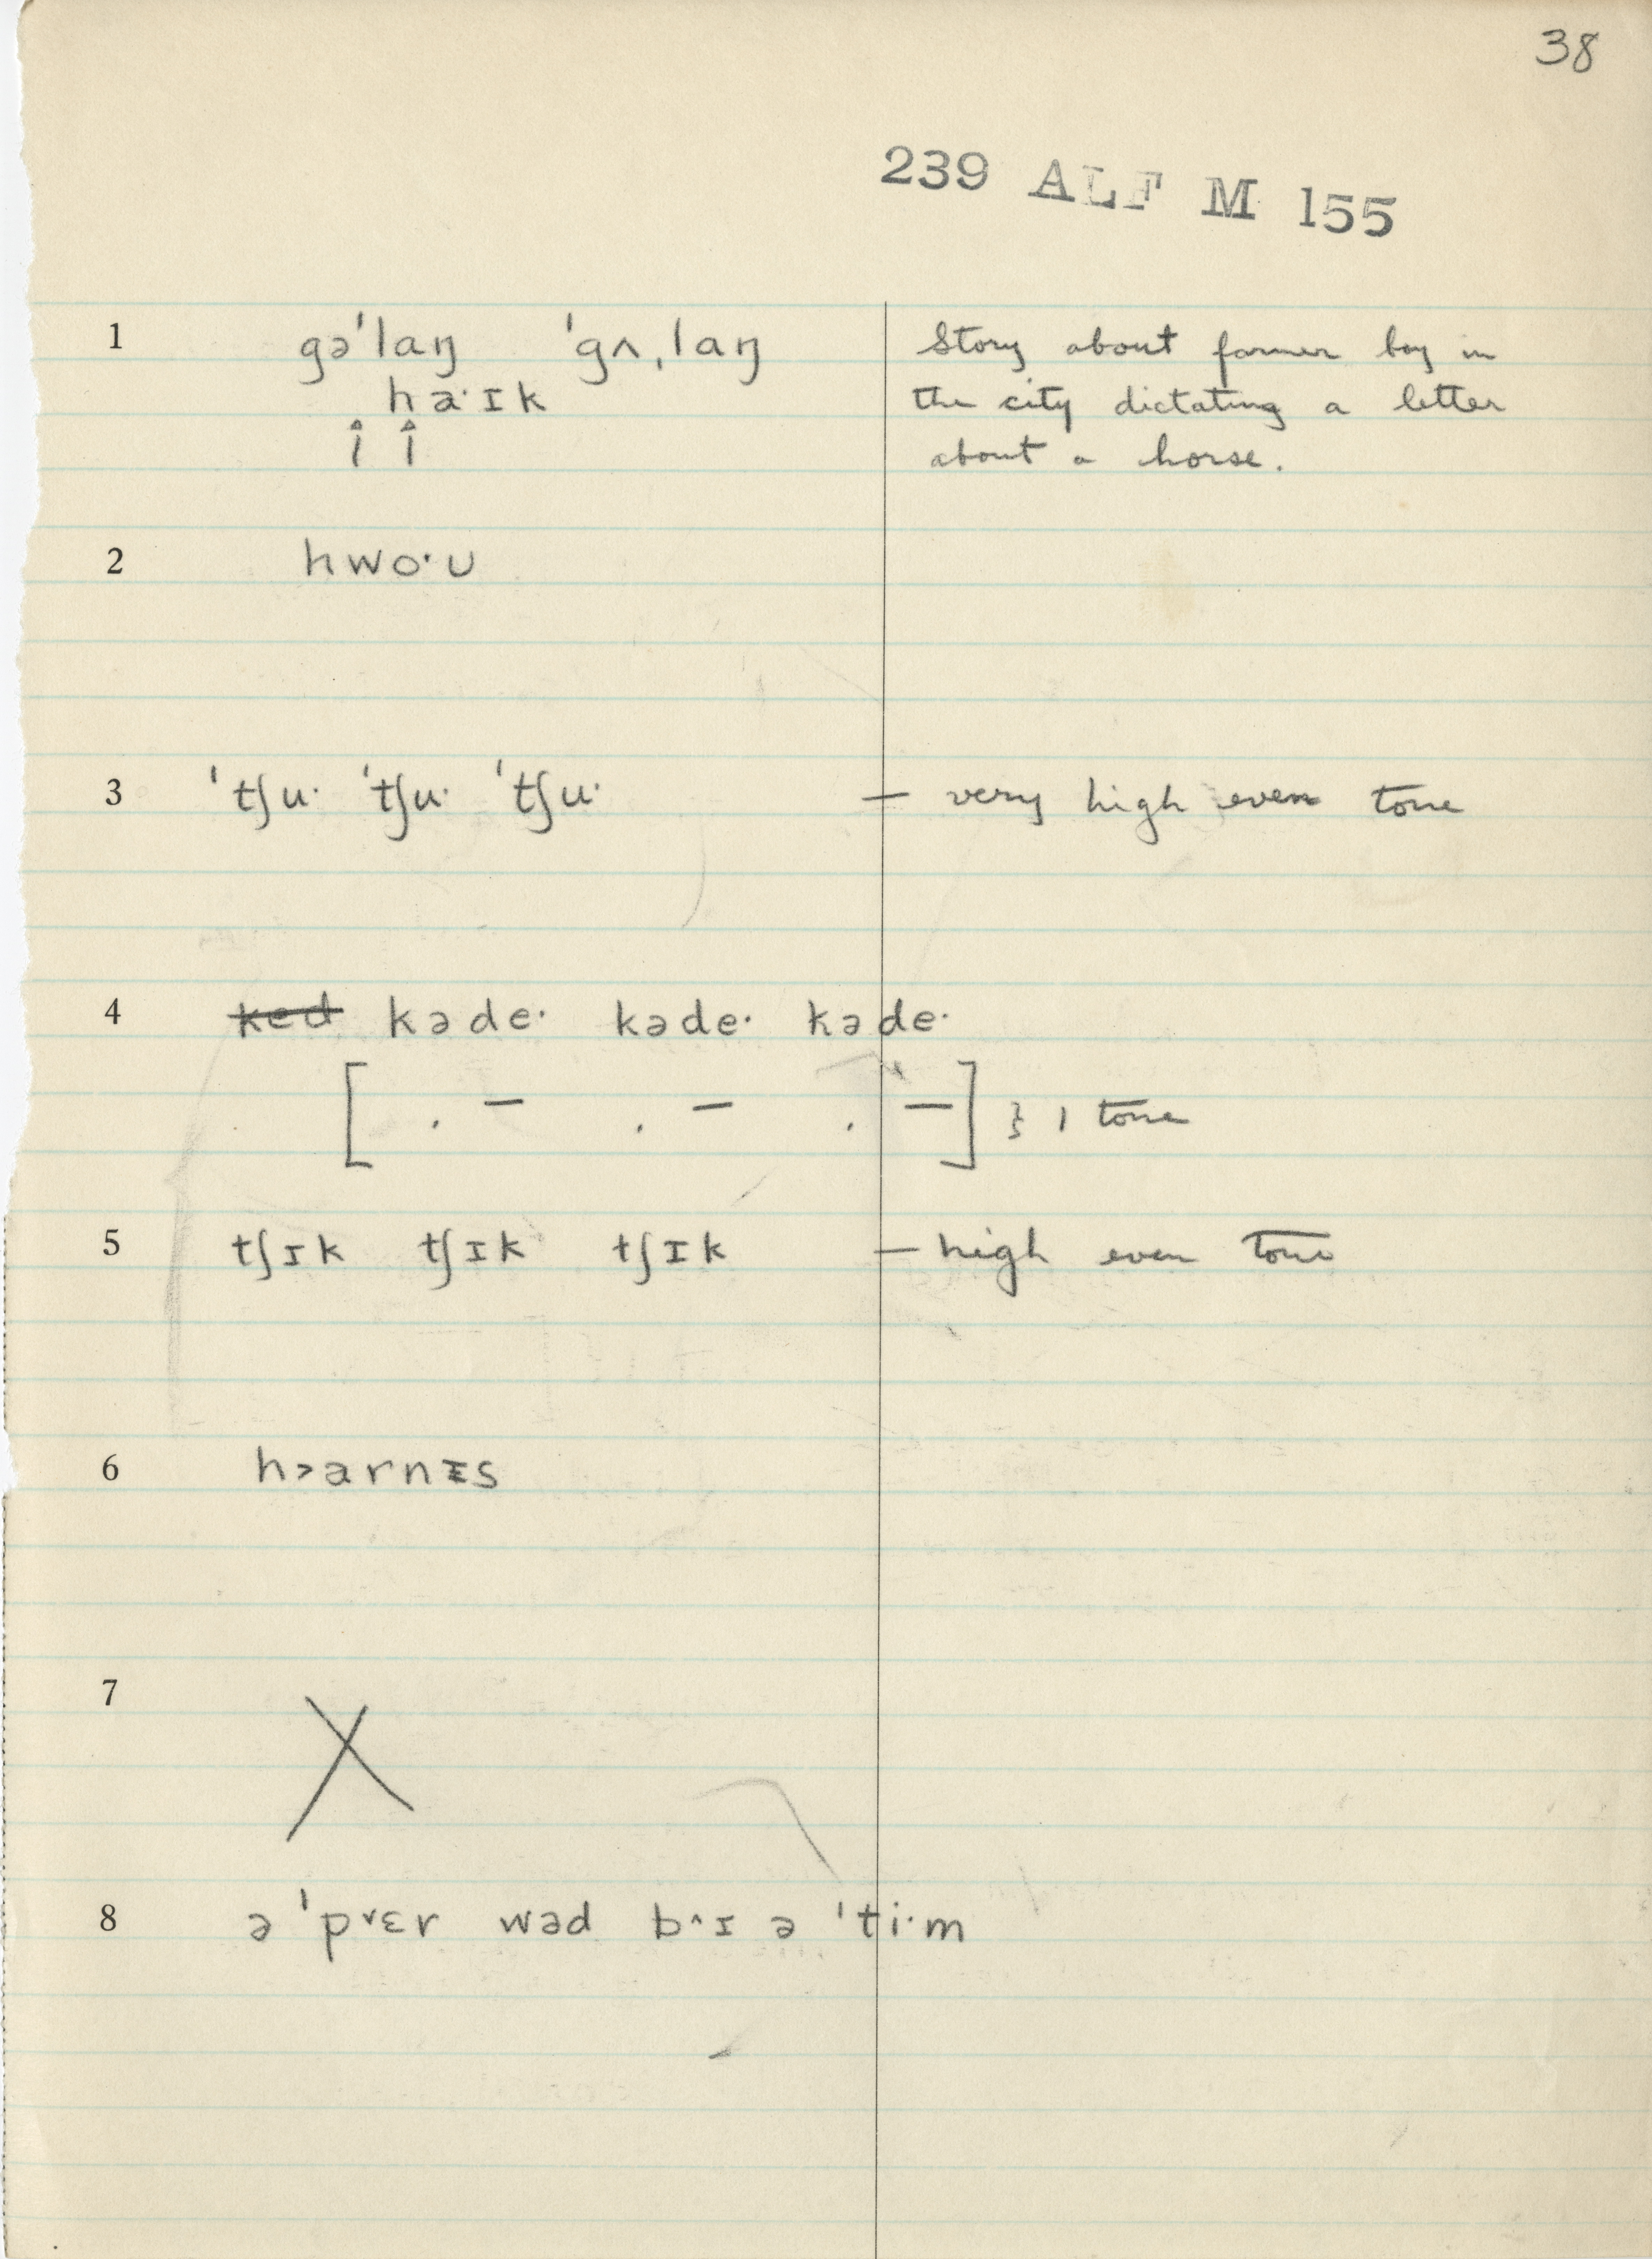 38
239 ALF M 155
1 gə'laŋ 'gʌˌlaŋ Story about farmer boy in
ha·ɪk the city dictating a letter
about a horse.
2 hwo·ᴜ
3 'tʃu· 'tʃu· 'tʃu· — very high even tone
4 ked kəde· kəde· kəde·
[ . – . – . – ] } 1 tone
5 tʃɪk tʃɪk tʃɪk — high even tone
6 h>arnɪs
7 X
8 ə 'p˅ɛr wəd b^ɪ ə 'ti·m